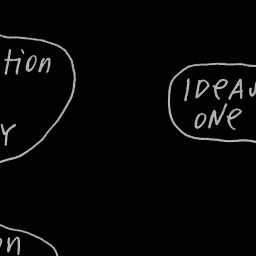 tion
Y
IDEA
ONE
on